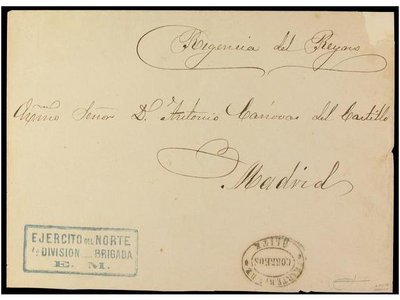 Regencia del Reyno
Exmo Señor D. Antonio Cánovas del Castillo
Madrid
EJERCITO DEL NORTE
DIVISION BRIGADA
E. M.
CORREOS
OLITE